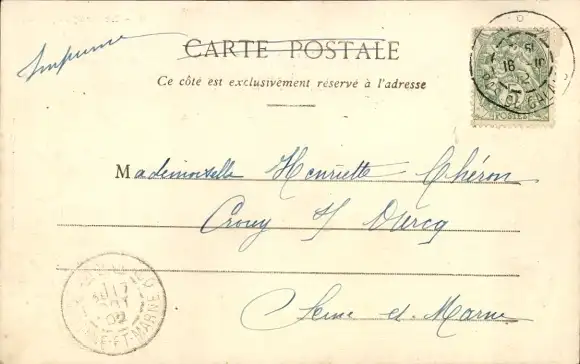 Imprimé
CARTE POSTALE
Ce côté est exclusivement réservé à l'adresse
Mademoiselle Henriette Chéron
Crouy s/ Ourcq
Seine et Marne
POSTES
17
02
SEINE-ET-MARNE